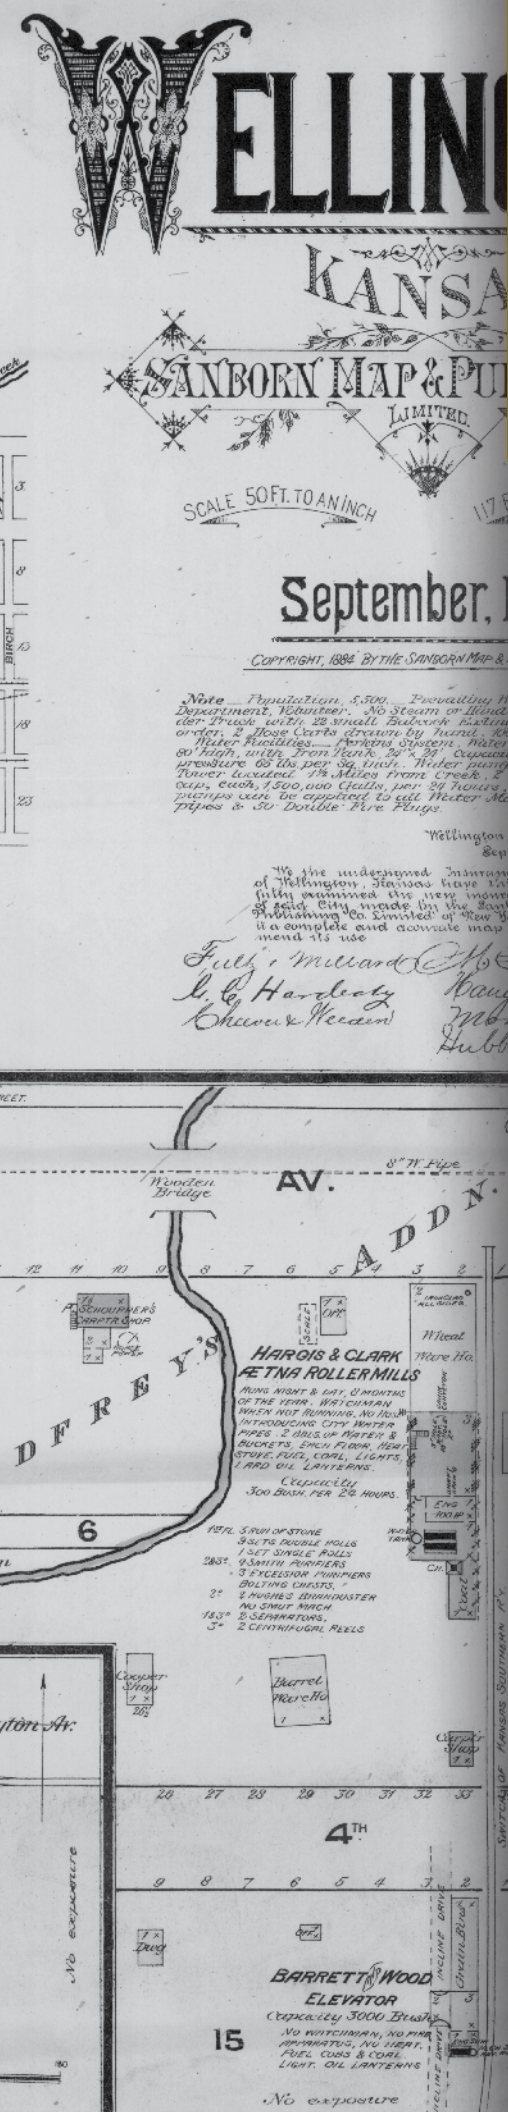 WELLIN
KANSA
SANBORN MAP & PU
LIMITED.
SCALE 50 FT. TO AN INCH
117
September,
COPYRIGHT, 1884 BY THE SANBORN MAP &
3
8
BIRCH
13
18
23
Note Population, 5,500. Prevailing
Department, Volunteer. No Steam or
der Truck with 22 small Babcock
order. 2 Hose Carts drawn by hand.
Water Facilities Perkins System. Water
80' high, with Iron Tank, 24' x 24'
pressure 65 lbs per Sq. inch. Water
Tower located 1½ Miles from Creek. 2
cap, each, 1,500,000 Galls, per 24 hours,
pumps can be applied to all Water
pipes & 50 Double Fire Plugs.
Wellington
Sep
We the undersigned Insuran
of Wellington, Kansas have
fully examined the new insur
of said City made by the San
Publishing Co. Limited of New
it a complete and accurate map
mend its use
Millard
Hardesty
Hubb
REET.
8" W. Pipe
Wooden
Bridge
AV.
ADDN.
12 11 10 9 8 7 6 5 4 3 2 1
CARPTR SHOP
HORSE
POWER
SCALE
OFF.
DFREY'S
IRON CLAD
ALL SIDES.
Wheat
Ware Ho.
HARGIS & CLARK
ÆTNA ROLLER MILLS
RUNS NIGHT & DAY, 8 MONTHS
OF THE YEAR. WATCHMAN
WHEN NOT RUNNING, NO
INTRODUCING CITY WATER
PIPES. 2 BBLS. OF WATER &
BUCKETS, EACH FLOOR, HEAT
STOVE, FUEL, COAL, LIGHTS,
LARD OIL LANTERNS.
Capacity
300 BUSH. PER 24 HOURS.
ENG
100 HP
TANK
CH.
Coal
6
1ST FL. 5 RUN OF STONE
9 SETS DOUBLE ROLLS
1 SET SINGLE ROLLS
2&3° 9 SMITH PURIFIERS
3 EXCELSIOR PURIFIERS
BOLTING CHESTS,
2° 2 HUGHES BRANDUSTER
NO SMUT MACH.
1&3° 2 SEPARATORS.
3° 2 CENTRIFUGAL REELS
Cooper
Shop
1 x
Barrel
Ware Ho
1 x
Carptr
Shop
1 x
SWITCH OF KANSAS SOUTHERN RY.
gton Av.
No exposure
26 27 28 29 30 31 32 33
4TH
9 8 7 6 5 4 3 2 1
Dwg
OFF
INCLINE DRIVE
Grain Bins
BARRETT AND WOOD
ELEVATOR
Capacity 3000 Bush
NO WATCHMAN, NO FIRE
APPARATUS, NO HEAT.
FUEL COBS & COAL
LIGHT. OIL LANTERNS
INCLINE DRIVE
15
No exposure